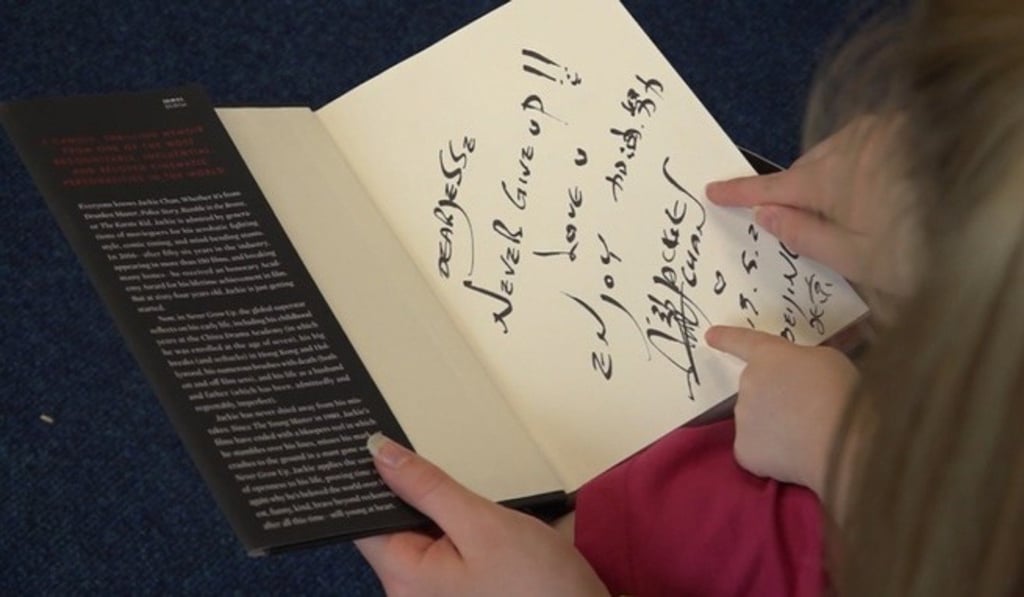 FROM ONE OF THE MOST
RECOGNIZABLE, INFLUENTIAL,
AND BELOVED CINEMATIC
PERSONALITIES IN THE WORLD
Everyone knows Jackie Chan. Whether it's from
Drunken Master, Police Story, Rumble in the Bronx
or The Karate Kid, Jackie is admired by genera-
for his acrobatic fighting
style, comic timing, and mind-bending
In 2016—after fifty-six years in the industry,
appearing in more than 200 films, and breaking
many bones—he received an honorary Acad-
emy Award for his lifetime achievement in film.
But at sixty-four years old, Jackie is just getting
started.
Now, in Never Grow Up, the global superstar
reflects on his early life, including his childhood
years at the China Drama Academy (in which
he was enrolled at the age of seven), his big
breaks (and setbacks) in Hong Kong and
his numerous brushes with death (both
on and off film sets), and his life as a husband
and father (which has been, admittedly and
regrettably, imperfect).
Jackie has never shied away from his mis-
takes. Since The Young Master in 1980, Jackie's
films have ended with a bloopers reel in which
he stumbles over his lines, misses his
crashes to the ground in a
Never Grow Up, Jackie applies the
of to his life, proving time
again why he's beloved the world over:
funny, kind, brave beyond
after all this time—still young at heart.
DEAR JESSE
NEVER GIVE UP!!
LOVE U
ENJOY
加油 努力
JACKIE
CHAN
19.5.2
BEIJING
北京